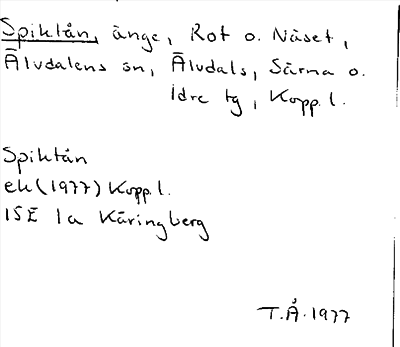 Spiktån, änge, Rot o. Näset,
Älvdalens sn, Älvdals, Särna o.
Idre tg, Kopp. l.
Spiktån
ek (1977) Kopp. l.
15E 1a Käringberg
T.Å. 1977